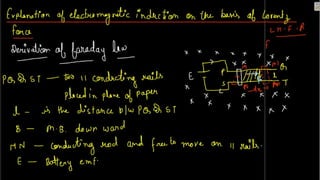 Explanation of electromagnetic indrction on the basis of Lorentz force
L.H.F.R
F
Derivation of faraday law
PQ & ST — two 11 conducting rails
placed in plane of paper
l - is the distance b/w PQ & ST
B - M.B. downward
MN - conducting rod and free to move on 11 rails.
E - Battery emf.
E
P
Q
S
T
M
N
l
dx